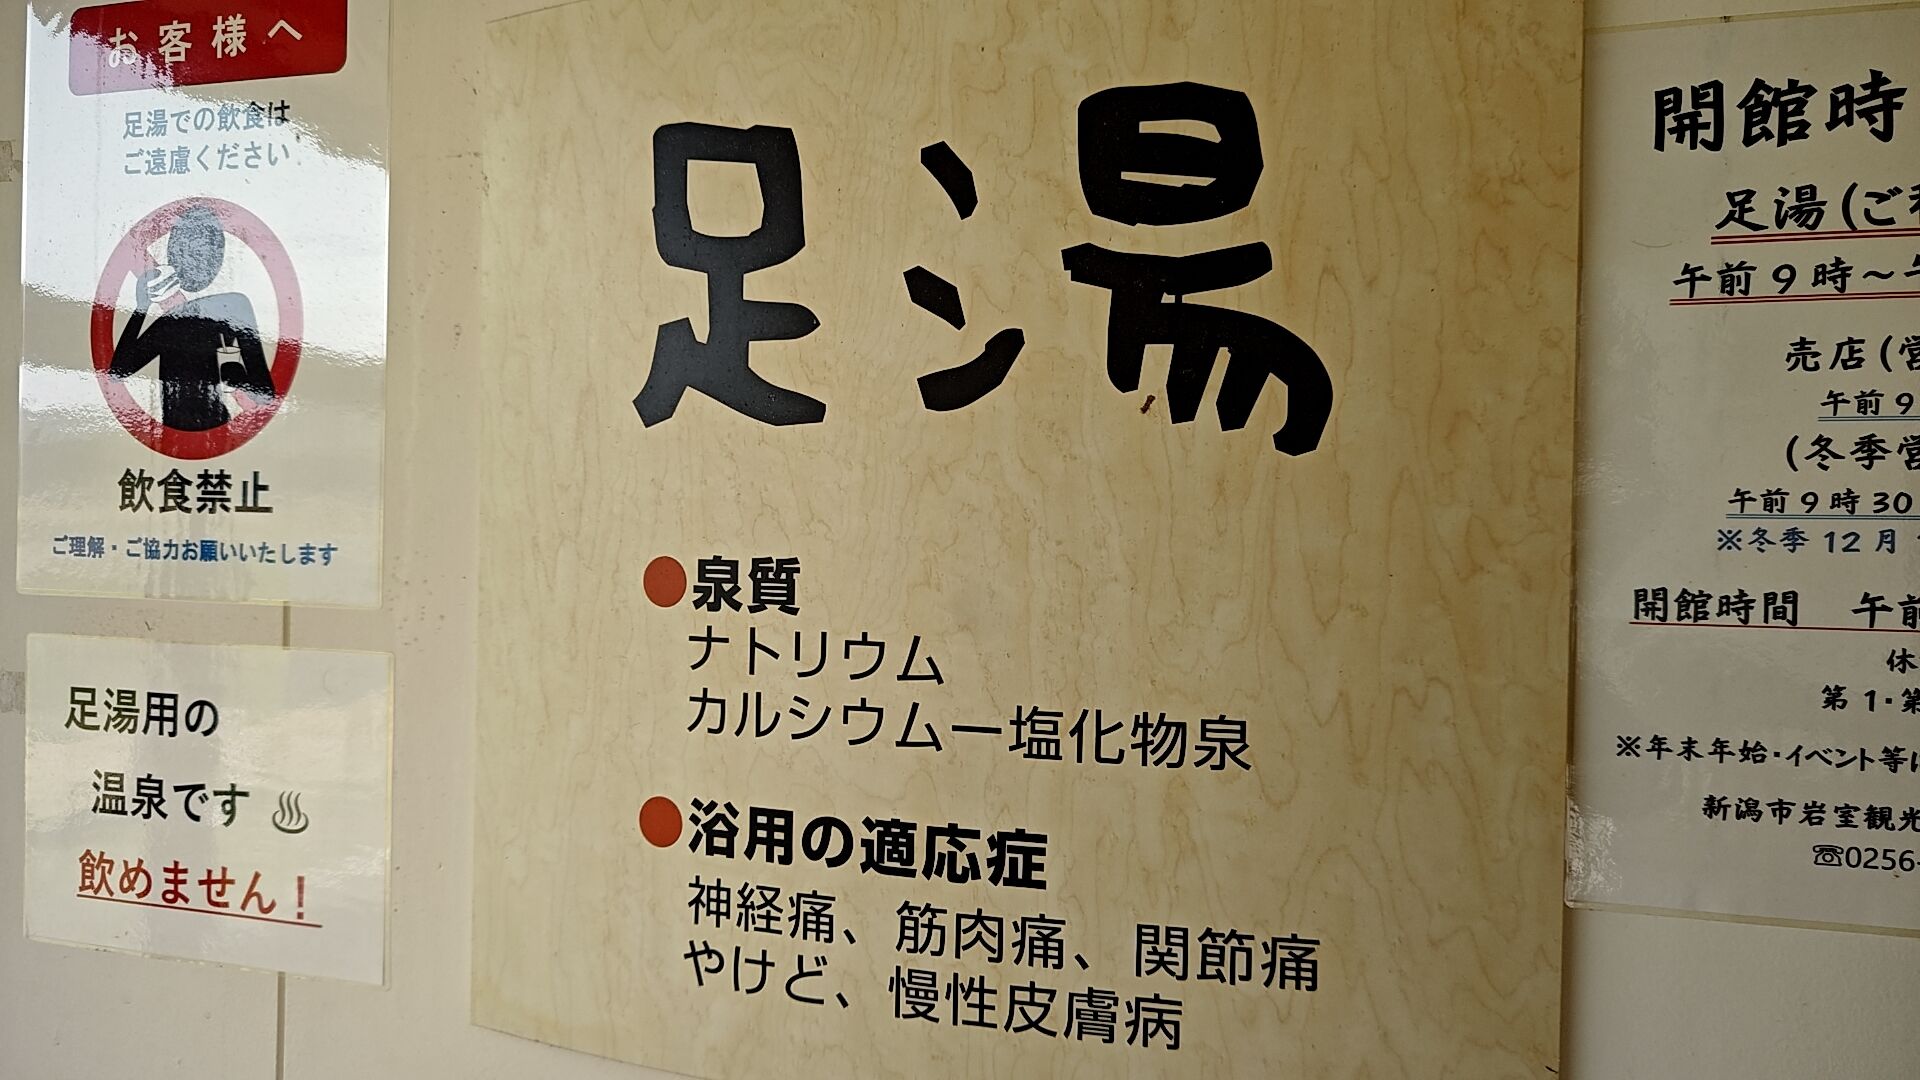 お客様へ
足湯での飲食は、
ご遠慮ください
飲食禁止
ご理解・ご協力お願いいたします
足湯用の
温泉です♨
飲めません！
足湯
●泉質
ナトリウム
カルシウムー塩化物泉
●浴用の適応症
神経痛、筋肉痛、関節痛
やけど、慢性皮膚病
開館時
足湯(ご
午前9時～午
売店(営
午前9
(冬季営
午前9時30
※冬季12月
開館時間　午前
休
第1・第
※年末年始・イベント等に
新潟市岩室観光
☎0256-